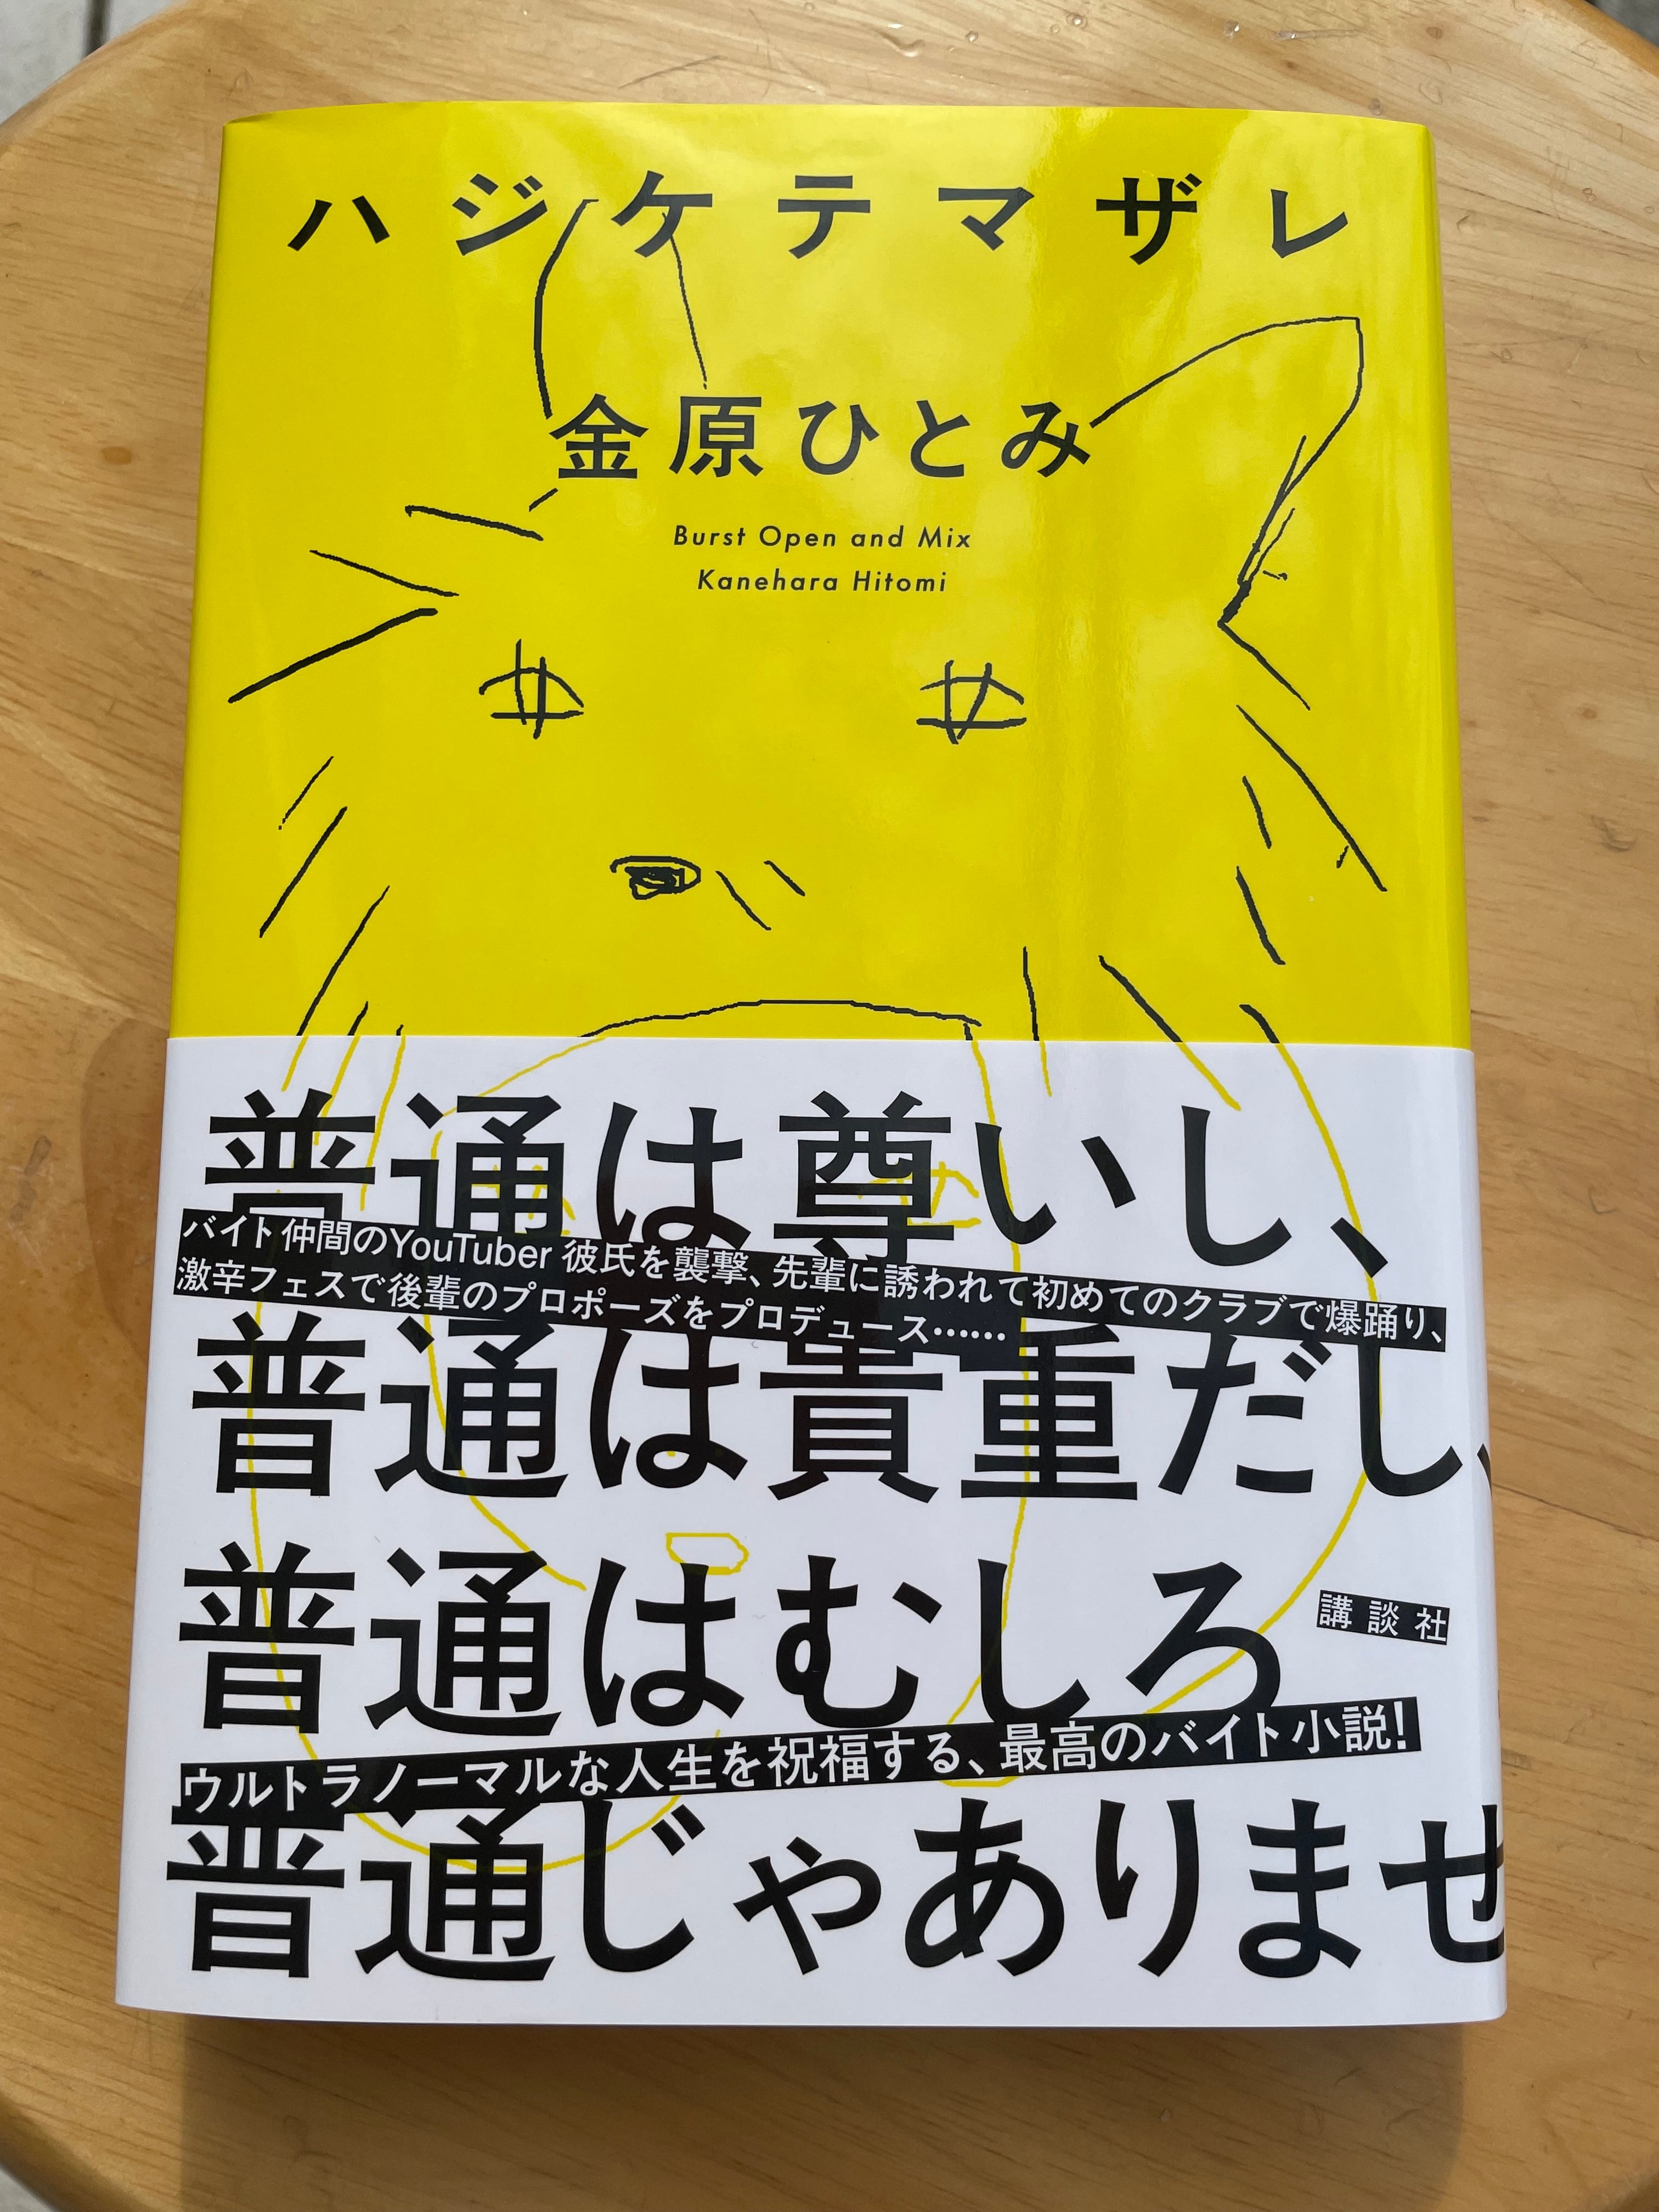 ハジケテマザレ
金原ひとみ
Burst Open and Mix
Kanehara Hitomi
普通は尊いし、
バイト仲間のYouTuber彼氏を襲撃、先輩に誘われて初めてのクラブで爆踊り、
激辛フェスで後輩のプロポーズをプロデュース……
普通は貴重だし、
普通はむしろ
講談社
ウルトラノーマルな人生を祝福する、最高のバイト小説!
普通じゃありませ